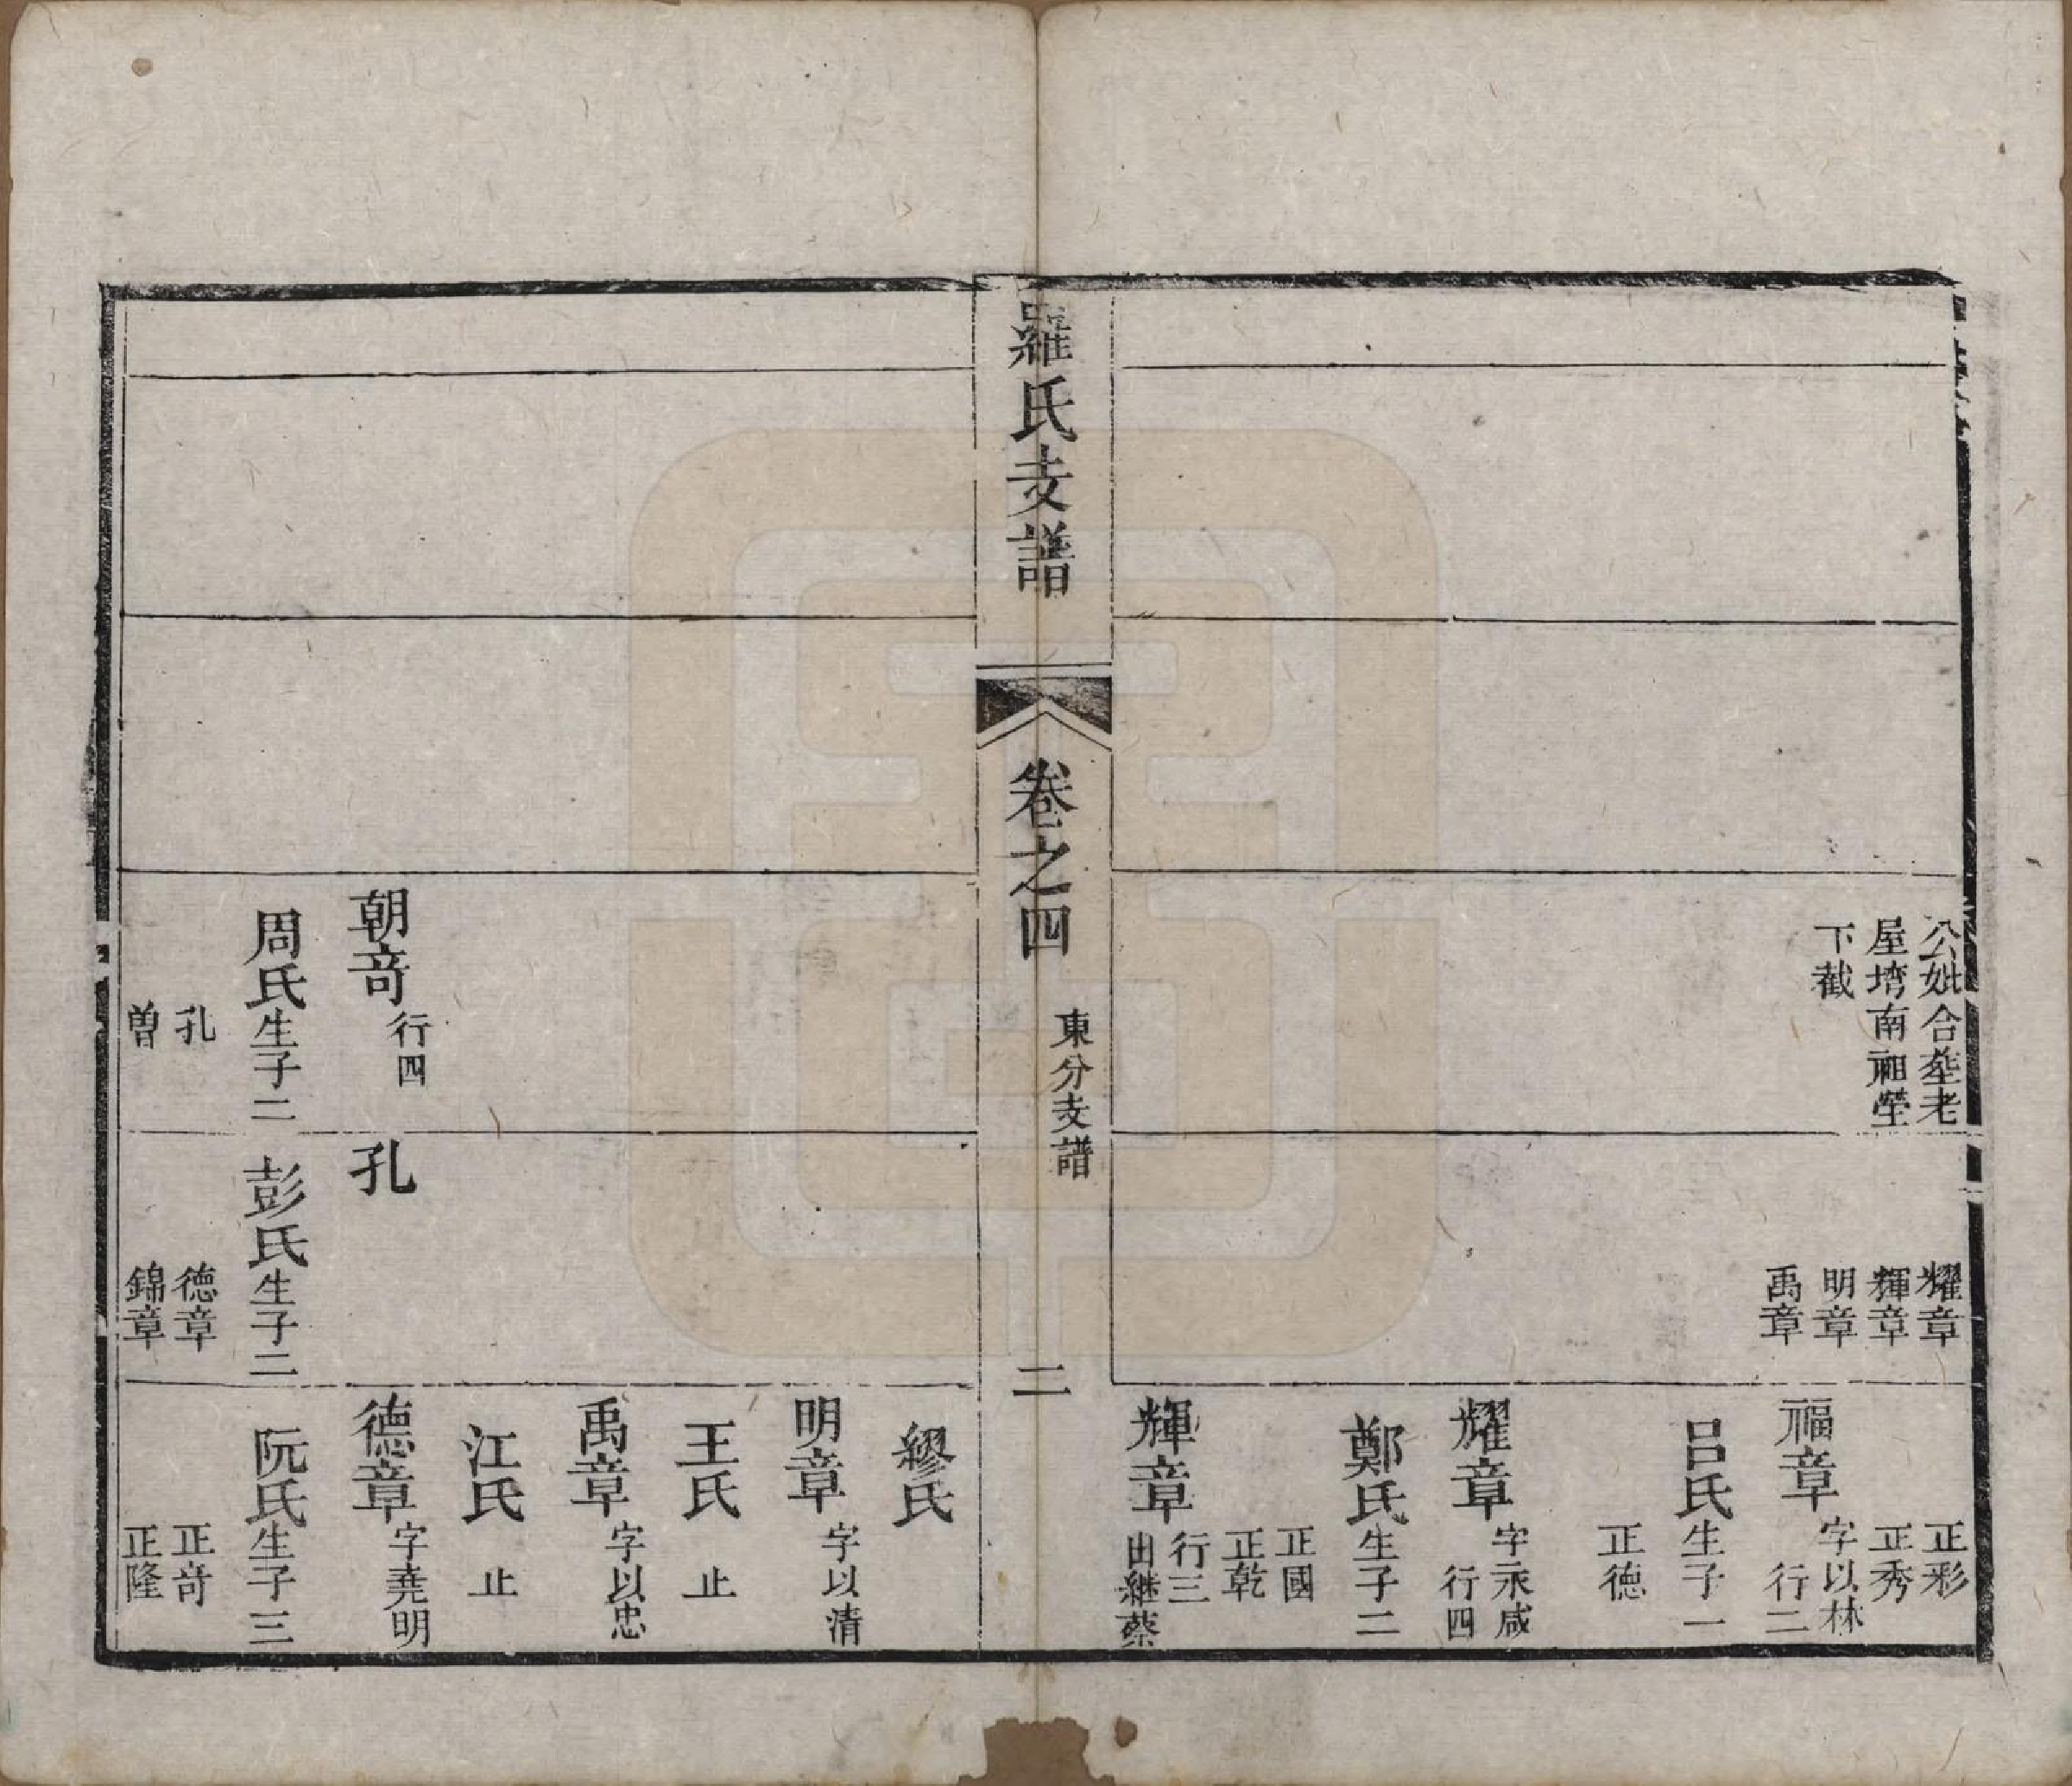 公妣合塟老
屋塆南祖塋
下截
耀章
輝章
明章
禹章
正彩
正秀
福章 字以林
行二
呂氏 生子一
正德
耀章 字永咸
行四
鄭氏 生子二
正國
正乾
輝章 行三
出継蔡
羅氏支譜
卷之四
東分支譜
二
繆氏
明章 字以清
王氏 止
禹章 字以忠
江氏 止
朝竒 行四
周氏 生子二
孔
曽
孔
彭氏 生子二
德章
錦章
德章 字堯明
阮氏 生子三
正竒
正隆